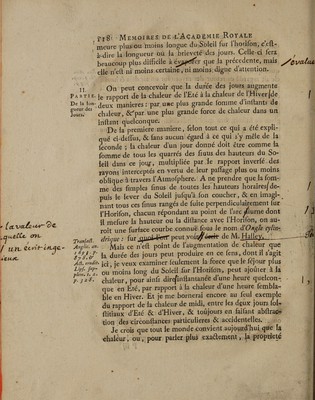 118 MEMOIRES DE L'ACADÉMIE ROYALE
meure plus ou moins longue du Soleil sur l'horison, c'est-
à-dire la longueur ou la brieveté des jours. Celle-ci sera
beaucoup plus difficile à évaporer que la précédente, mais
elle n'est ni moins certaine, ni moins digne d'attention.
évalue
II.
PARTIE.
De la lon-
gueur des
Jours.
On peut concevoir que la durée des jours augmente
le rapport de la chaleur de l'Eté à la chaleur de l'Hiver de
deux manieres : par une plus grande somme d'instants de
chaleur, & par une plus grande force de chaleur dans un
instant quelconque.
De la premiere maniére, selon tout ce qui a été expli-
qué ci-dessus, & sans aucun égard à ce qui s'y mêle de la
seconde ; la chaleur d'un jour donné doit être comme la
somme de tous les quarrés des sinus des hauteurs du So-
leil dans ce jour, multipliée par le rapport inversé des
rayons interceptés en vertu de leur passage plus ou moins
oblique à travers l'Atmosphere. A ne prendre que la som-
me des simples sinus de toutes les hauteurs horaires de-
puis le lever du Soleil jusqu'à son coucher, & en imagi-
nant tous ces sinus rangés de suite perpendiculairement sur
l'Horison, chacun répondant au point de l'arc diurne dont
il mesure la hauteur ou la distance avec l'Horison, on au-
roit une surface courbe connuë sous le nom d'Ongle cylin-
drique : sur peut voir de M. Halley.
la valeur de
laquelle on
un écrit inge-
nieux
Transact.
Mais ce n'est point de l'augmentation de chaleur que
la durée des jours peut produire en ce sens, dont il s'agit
ici, je veux examiner seulement la force que le séjour plus
ou moins long du Soleil sur l'Horison, peut ajoûter à la
chaleur, pour ainsi dire, instantanée d'une heure quelcon-
que en Eté, par rapport à la chaleur d'une heure sembla-
ble en Hiver. Et je me bornerai encore au seul exemple
du rapport de la chaleur de midi, entre les deux jours sol-
stitiaux d'Eté & d'Hiver, & toûjours en faisant abstrac-
tion des circonstances particulieres & accidentelles.
Je crois que tout le monde convient aujourd'hui que la
chaleur, ou, pour parler plus exactement, la propriété